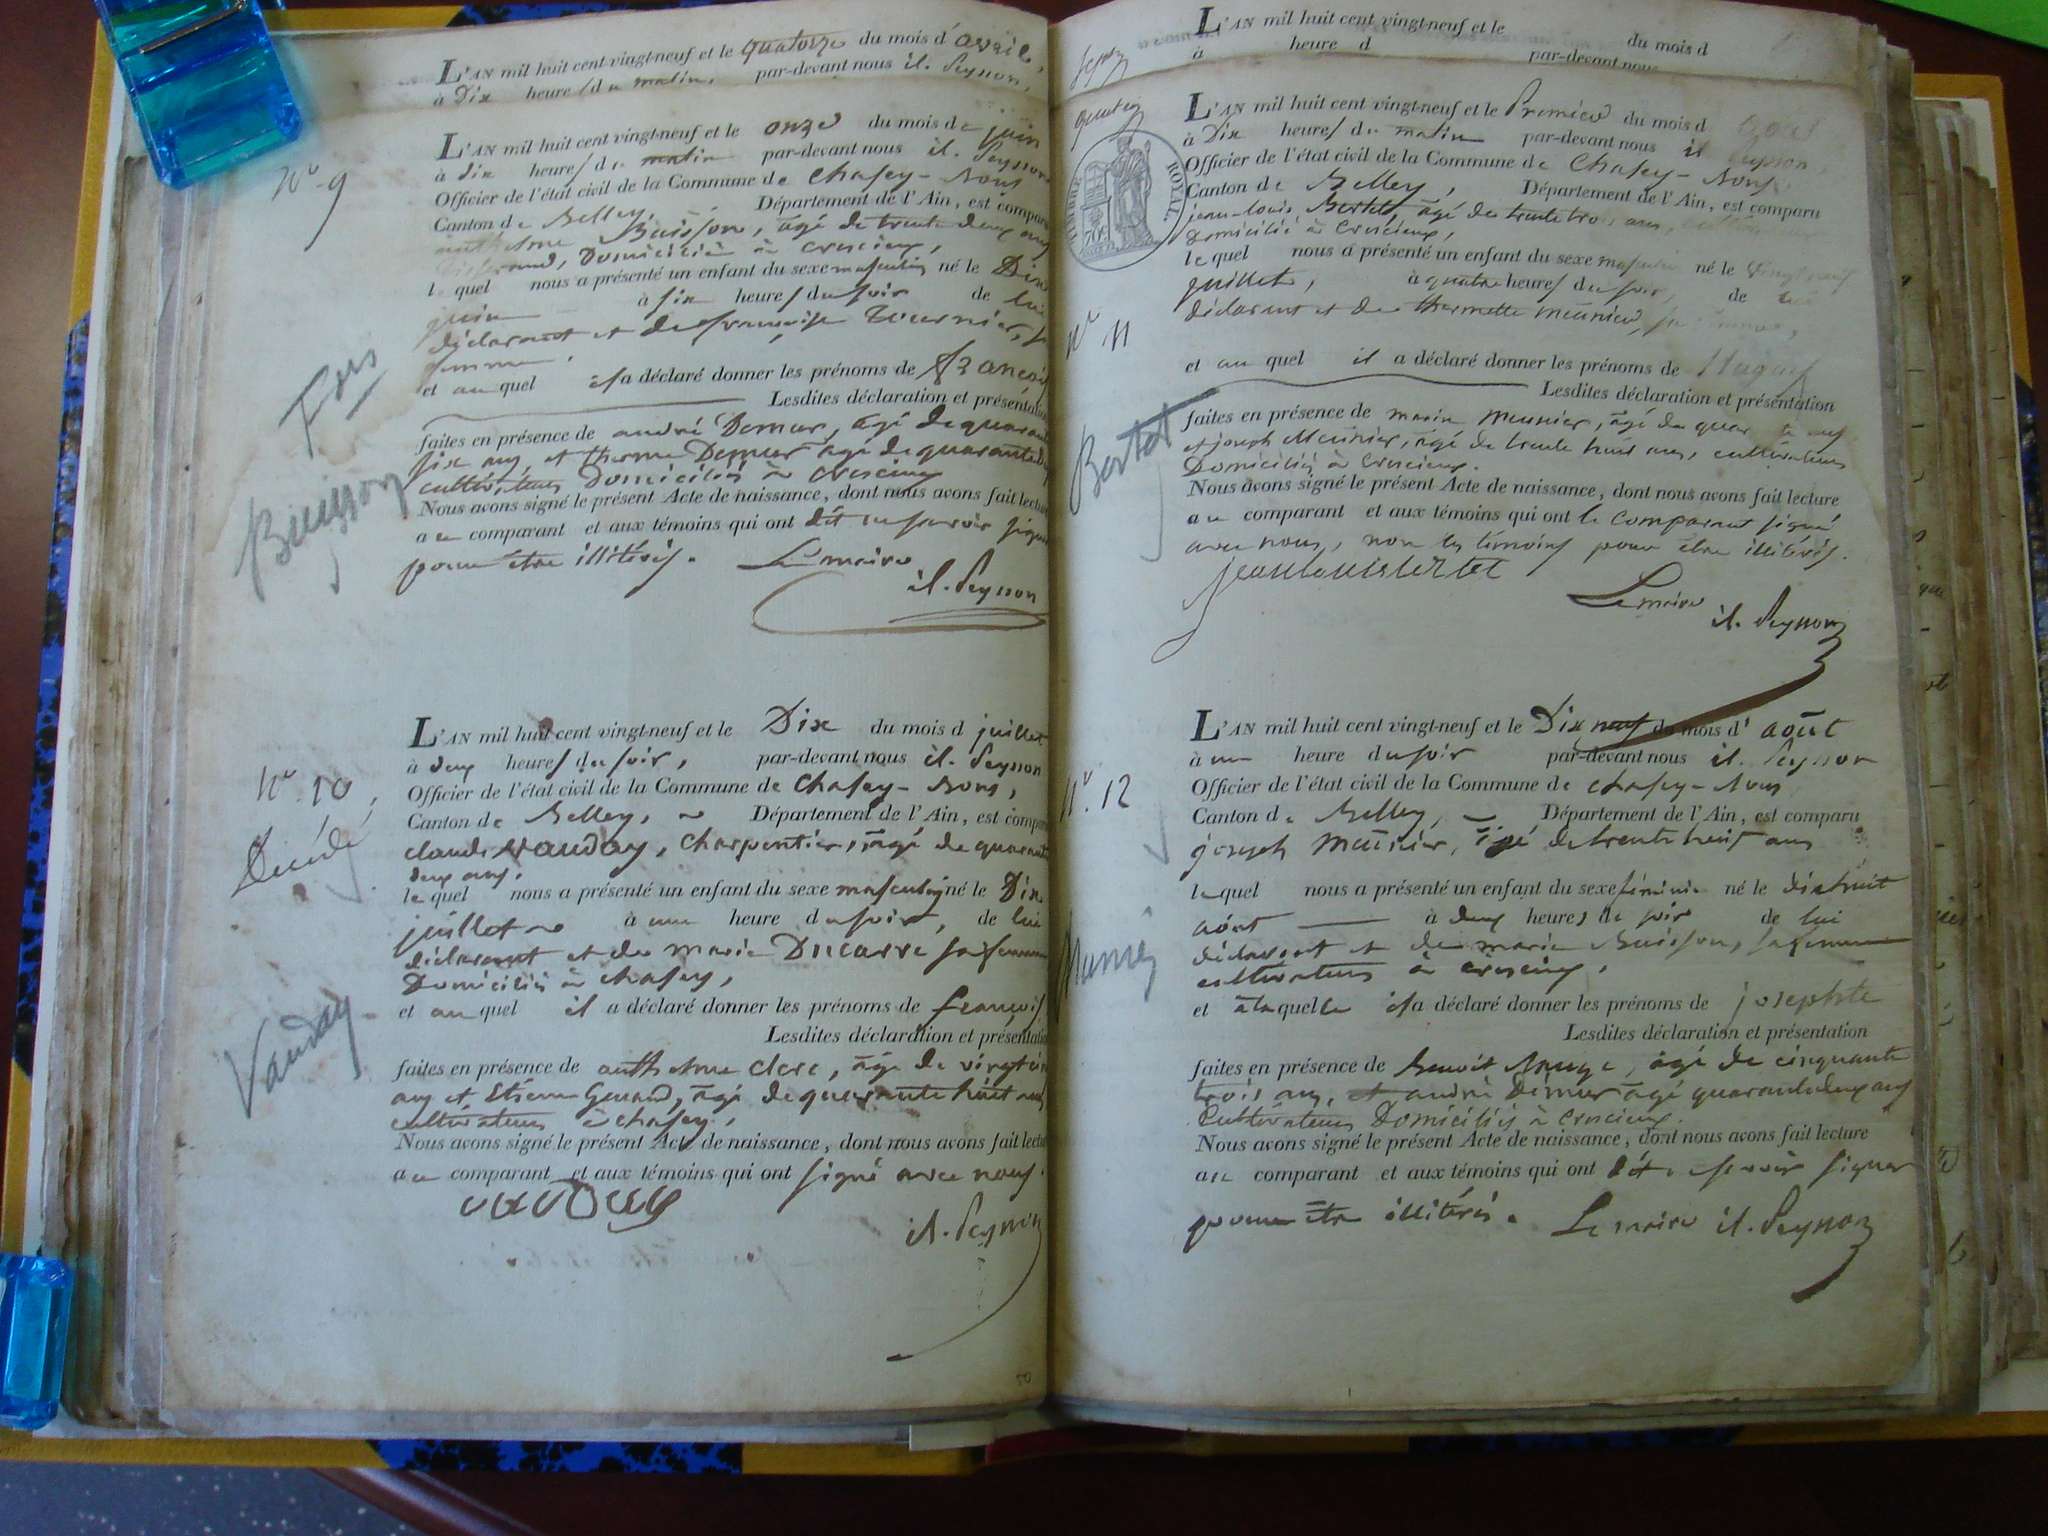 L'AN mil huit cent vingt-neuf et le quatorze du mois d'avril,
à Dix heures du matin, par-devant nous it. Peysson,
L'AN mil huit cent vingt-neuf et le onze du mois de juin
à dix heures du matin par-devant nous it. Peysson
Nº 9
Officier de l'état civil de la Commune de Chasey-Bons
Canton de Belley, Département de l'Ain, est comparu
anthelme Buisson, âgé de trente deux ans
domicilié à Crescieux,
lequel nous a présenté un enfant du sexe masculin né le Dix
juin à six heures du soir de lui
déclarant et de françoise Tournier, sa
femme.
et auquel il a déclaré donner les prénoms de françois
Lesdites déclaration et présentation
faites en présence de andré Demur, âgé de quarante
six ans, et therme Demur âgé de quarante
cultivateurs Domiciliés à Crescieux
Buisson
Nous avons signé le présent Acte de naissance, dont nous avons fait lecture
au comparant et aux témoins qui ont dit ne savoir signer
pour être illitérés. Le maire
it. Peysson
L'AN mil huit cent vingt-neuf et le Dix du mois d juillet
à deux heures du soir, par-devant nous it. Peysson
Nº 10,
Officier de l'état civil de la Commune de Chasey-Bons,
Canton de Belley, Département de l'Ain, est comparu
Décédé
claude Vauday, Charpentier, âgé de quarante
deux ans,
lequel nous a présenté un enfant du sexe masculin né le Dix
juillet à une heure du soir, de lui
déclarant et de marie Ducarre sa femme
Domiciliés à Chasey,
et auquel il a déclaré donner les prénoms de françois
Lesdites déclaration et présentation
Vauday
faites en présence de anthelme Clerc, âgé de vingt
ans et Etienne Genand, âgé de quarante huit ans
cultivateurs à Chasey,
Nous avons signé le présent Acte de naissance, dont nous avons fait lecture
au comparant et aux témoins qui ont signé avec nous.
vauday
it. Peysson
L'AN mil huit cent vingt-neuf et le du mois d
à heure d par-devant nous
TIMBRE ROYAL
L'AN mil huit cent vingt-neuf et le Premier du mois d août
à Dix heures du matin par-devant nous it Peysson,
Officier de l'état civil de la Commune de Chasey-Bons,
Canton de Belley, Département de l'Ain, est comparu
jean-louis Bertet, âgé de trente trois ans,
Domicilié à Crescieux,
lequel nous a présenté un enfant du sexe masculin né le vingt neuf
juillet, à quatre heures du soir, de lui
déclarant et de thermette meunier, sa femme,
Nº 11
et auquel il a déclaré donner les prénoms de
Lesdites déclaration et présentation
faites en présence de marin meunier, âgé de quarante ans
et joseph Meunier, âgé de trente huit ans, cultivateurs
Domiciliés à Crescieux.
Bertet
Nous avons signé le présent Acte de naissance, dont nous avons fait lecture
au comparant et aux témoins qui ont le comparant signé
avec nous, non les témoins pour être illitérés.
Le maire
it. Peysson
L'AN mil huit cent vingt-neuf et le Dix neuf du mois d'août
à une heure du soir par-devant nous it. Peysson
Officier de l'état civil de la Commune de Chasey-Bons
Nº 12
Canton de Belley, Département de l'Ain, est comparu
joseph Meunier, âgé de trente huit ans
lequel nous a présenté un enfant du sexe féminin né le dix huit
août à deux heures du soir de lui
déclarant et de marie Buisson, sa femme
cultivateurs à Crescieux,
et à laquelle il a déclaré donner les prénoms de josephte
Lesdites déclaration et présentation
faites en présence de benoit, âgé de cinquante
trois ans, et andré Demur âgé quarante deux ans
Cultivateurs Domiciliés à Crescieux.
Nous avons signé le présent Acte de naissance, dont nous avons fait lecture
au comparant et aux témoins qui ont dit ne savoir signer
pour être illitérés. Le maire it. Peysson